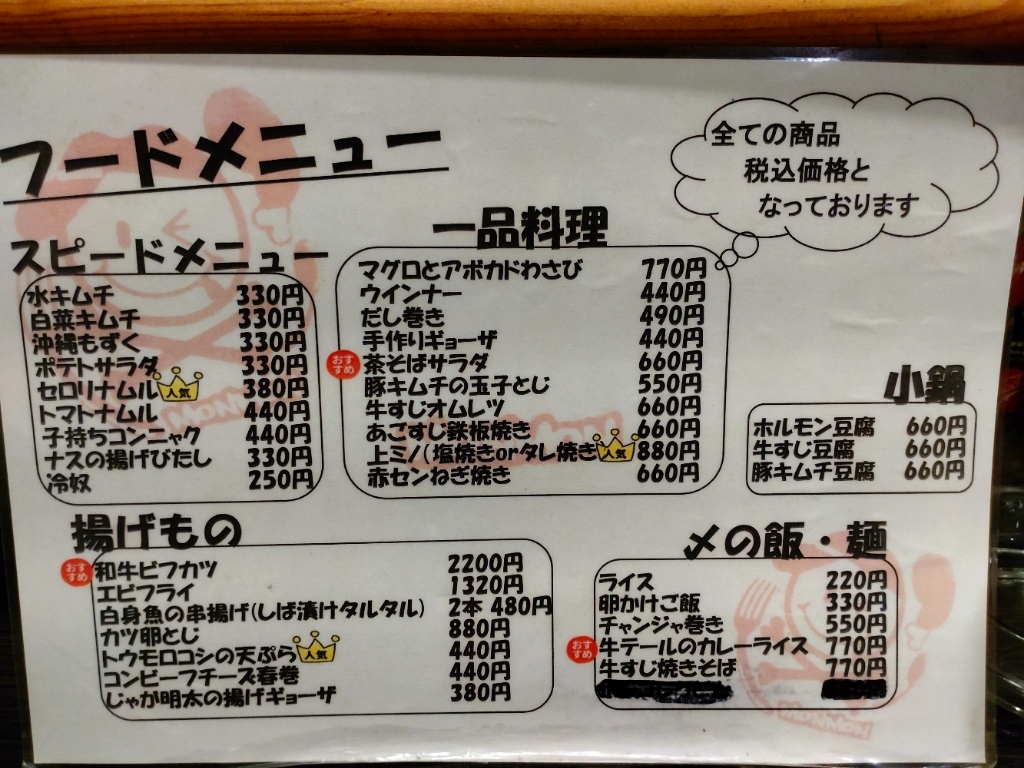 フードメニュー
全ての商品
税込価格と
なっております
スピードメニュー
水キムチ 330円
白菜キムチ 330円
沖縄もずく 330円
ポテトサラダ 330円
セロリナムル 人気 380円
トマトナムル 440円
子持ちコンニャク 440円
ナスの揚げびたし 330円
冷奴 250円
一品料理
マグロとアボカドわさび 770円
ウインナー 440円
だし巻き 490円
手作りギョーザ 440円
おすすめ 茶そばサラダ 660円
豚キムチの玉子とじ 550円
牛すじオムレツ 660円
あごすじ鉄板焼き 660円
上ミノ(塩焼きorタレ焼き 人気 880円
赤センねぎ焼き 660円
小鍋
ホルモン豆腐 660円
牛すじ豆腐 660円
豚キムチ豆腐 660円
揚げもの
おすすめ 和牛ビフカツ 2200円
エビフライ 1320円
白身魚の串揚げ(しば漬けタルタル) 2本 480円
カツ卵とじ 880円
トウモロコシの天ぷら 人気 440円
コンビーフチーズ春巻 440円
じゃが明太の揚げギョーザ 380円
〆の飯・麺
ライス 220円
卵かけご飯 330円
チャンジャ巻き 550円
おすすめ 牛テールのカレーライス 770円
牛すじ焼きそば 770円